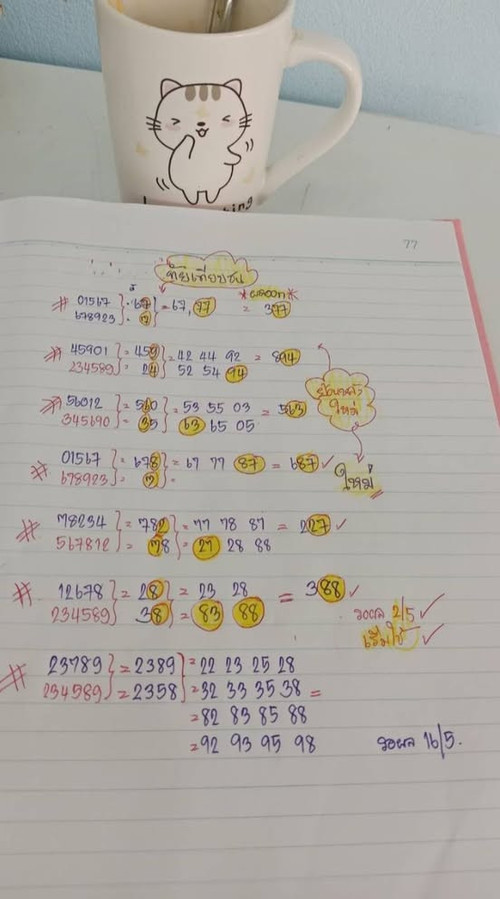 77
* ผลออก *
01567 } = 671 = 67, 77 = 377
678923
45901 } = 459 } = 42 44 92 = 894
234589 } = 24 } 52 54 94
56012 } = 560 } = 53 55 03 = 563
345690 } = 35 } 63 65 05
ใหม่
01567 } = 678 } = 67 77 87 = 687 ✓
678923 } = 7 } =
ใหม่
78234 } = 782 } = 77 78 87 = 227 ✓
567812 } = 78 } = 27 28 88
12678 } = 28 } = 23 28 = 388 ✓
234589 } 38 } = 83 88
รอผล 2/5 ✓
เริ่มใช้ ✓
23789 } = 2389 } = 22 23 25 28
234589 } = 2358 } = 32 33 35 38 =
= 82 83 85 88
= 92 93 95 98 รอผล 16/5.